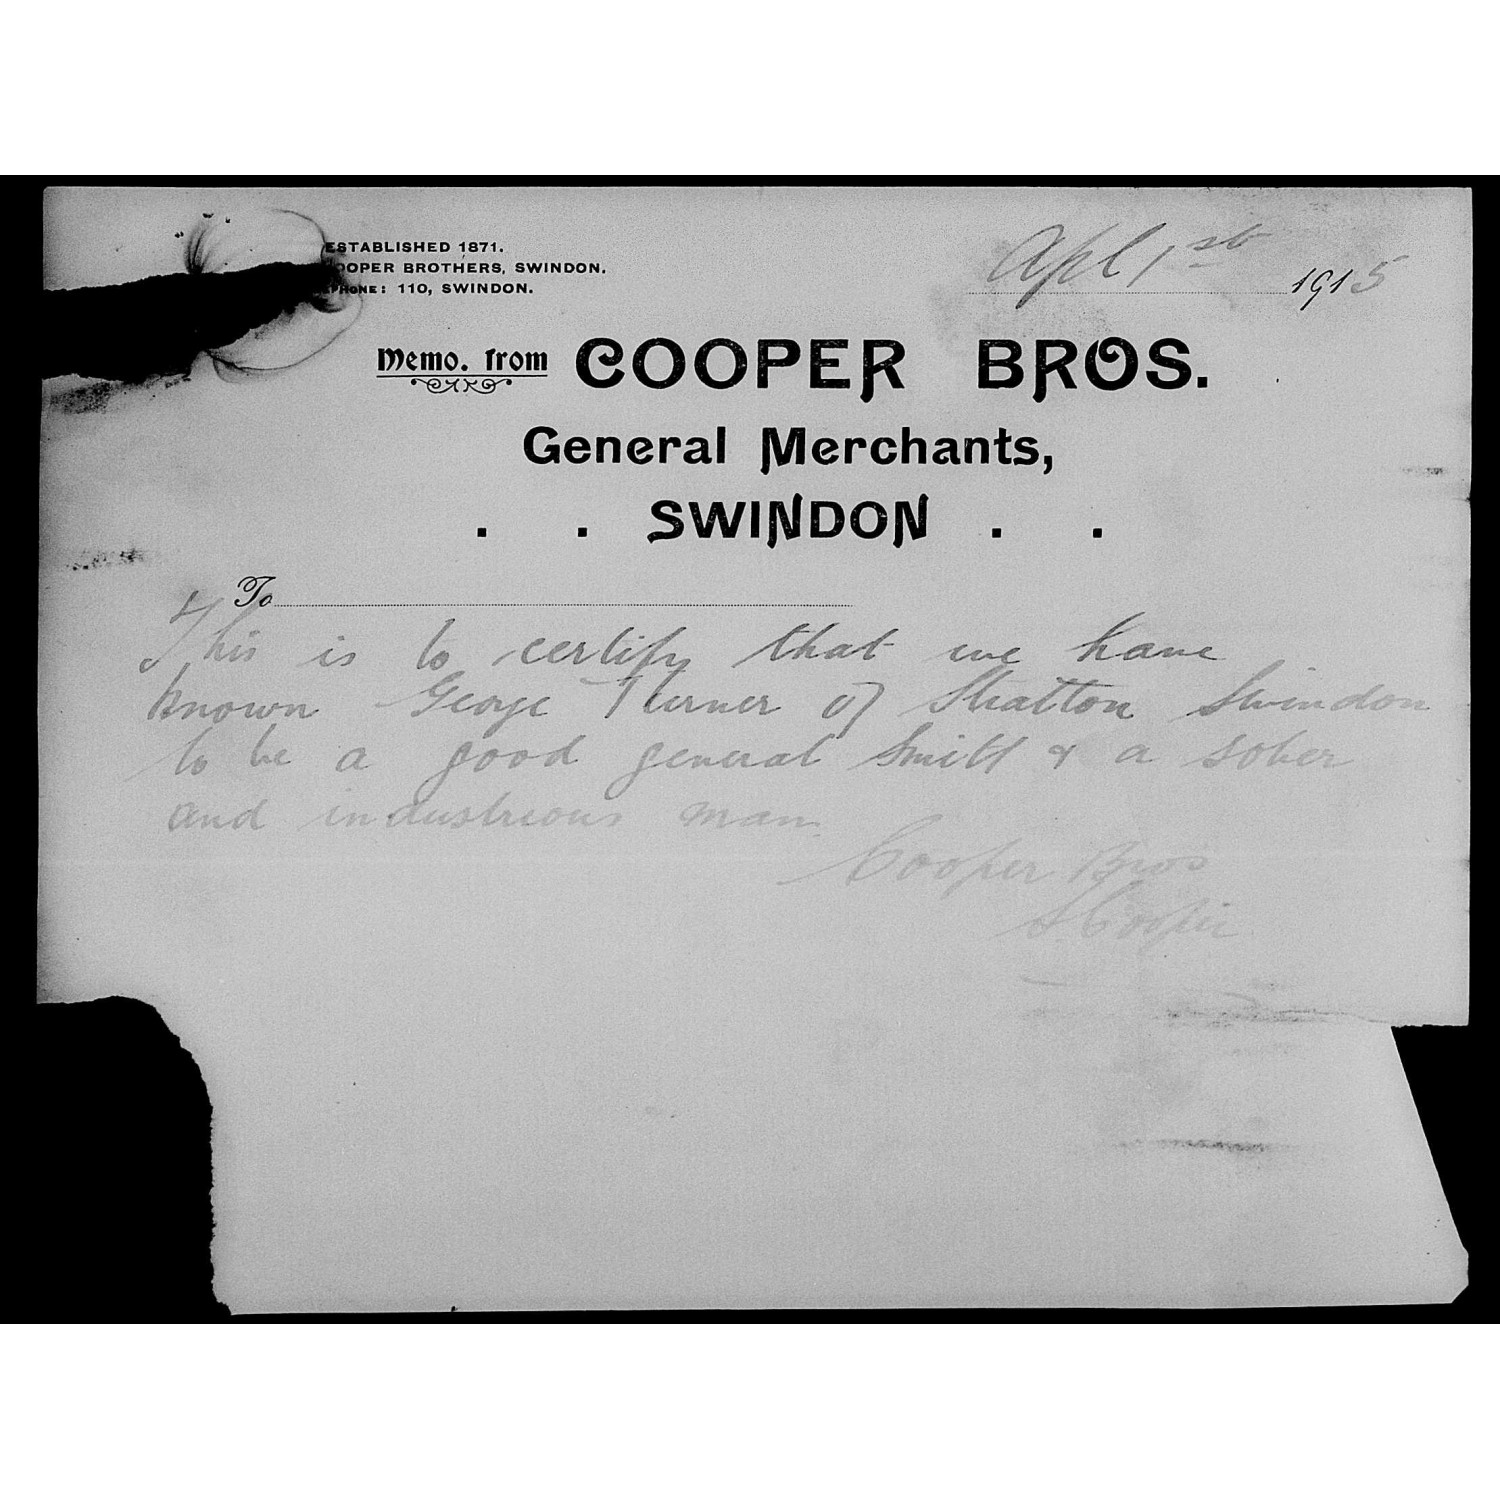 ESTABLISHED 1871.
OOPER BROTHERS, SWINDON.
PHONE: 110, SWINDON.
Apl 1st 1915
Memo. from COOPER BROS.
General Merchants,
. . SWINDON . .
To
This is to certify that we have
known George Turner of Stratton Swindon
to be a good general Smith & a sober
and industrious man
Cooper Bros
S Cooper